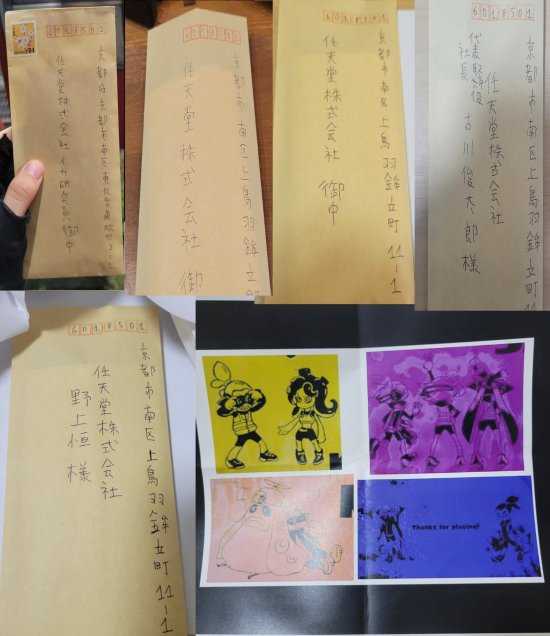 任天堂株式会社イカ研究員御中
京都市南区上鳥羽鉾立町
任天堂株式会社 御
京都市南区上鳥羽鉾立町11-1
任天堂株式会社 御中
6018501
京都市南区上鳥羽鉾立町11-1
任天堂株式会社
代表取締役
社長 古川俊太郎様
6018501
京都市南区上鳥羽鉾立町11-1
任天堂株式会社
野上恒様
Thanks for playing!